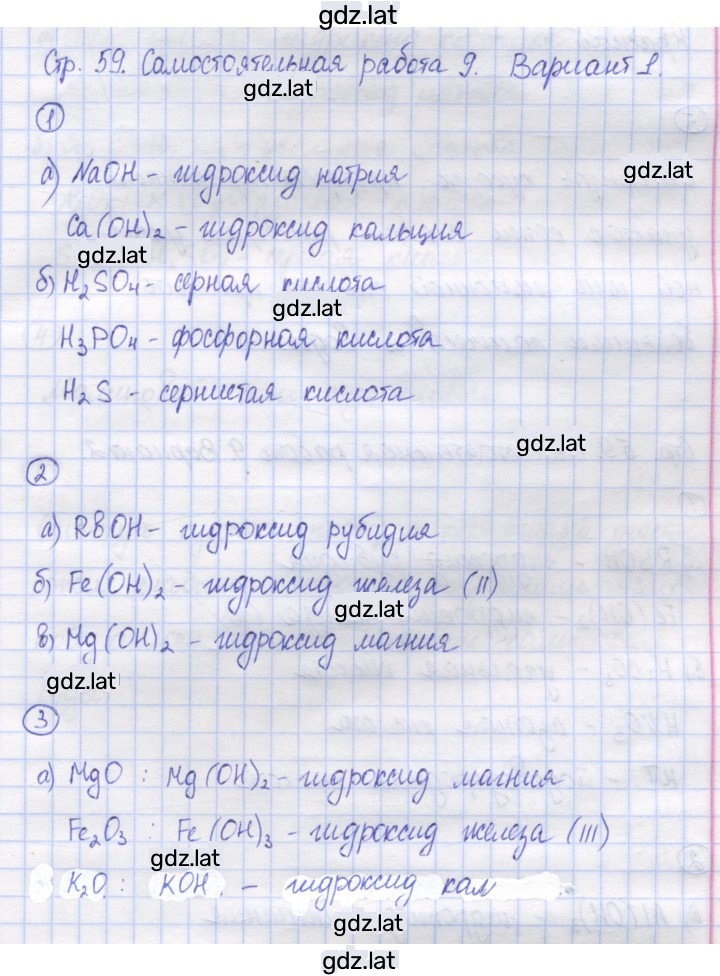 gdz.lat
Стр. 59. Самостоятельная работа 9. Вариант 1.
gdz.lat
1
gdz.lat
а) NaOH - гидроксид натрия
Ca(OH)₂ - гидроксид кальция
gdz.lat
б) H₂SO₄ - серная кислота
gdz.lat
H₃PO₄ - фосфорная кислота
H₂S - сернистая кислота
gdz.lat
2
а) RBOH - гидроксид рубидия
б) Fe(OH)₂ - гидроксид железа (II)
gdz.lat
в) Mg(OH)₂ - гидроксид магния
gdz.lat
3
а) MgO : Mg(OH)₂ - гидроксид магния
Fe₂O₃ : Fe(OH)₃ - гидроксид железа (III)
gdz.lat
K₂O : KOH - гидроксид кал
gdz.lat
gdz.lat